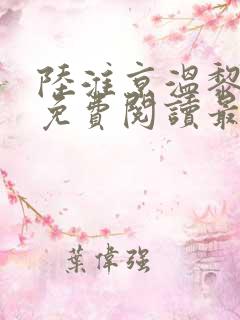 陸淮京溫黎
免費閱讀最
葉偉強